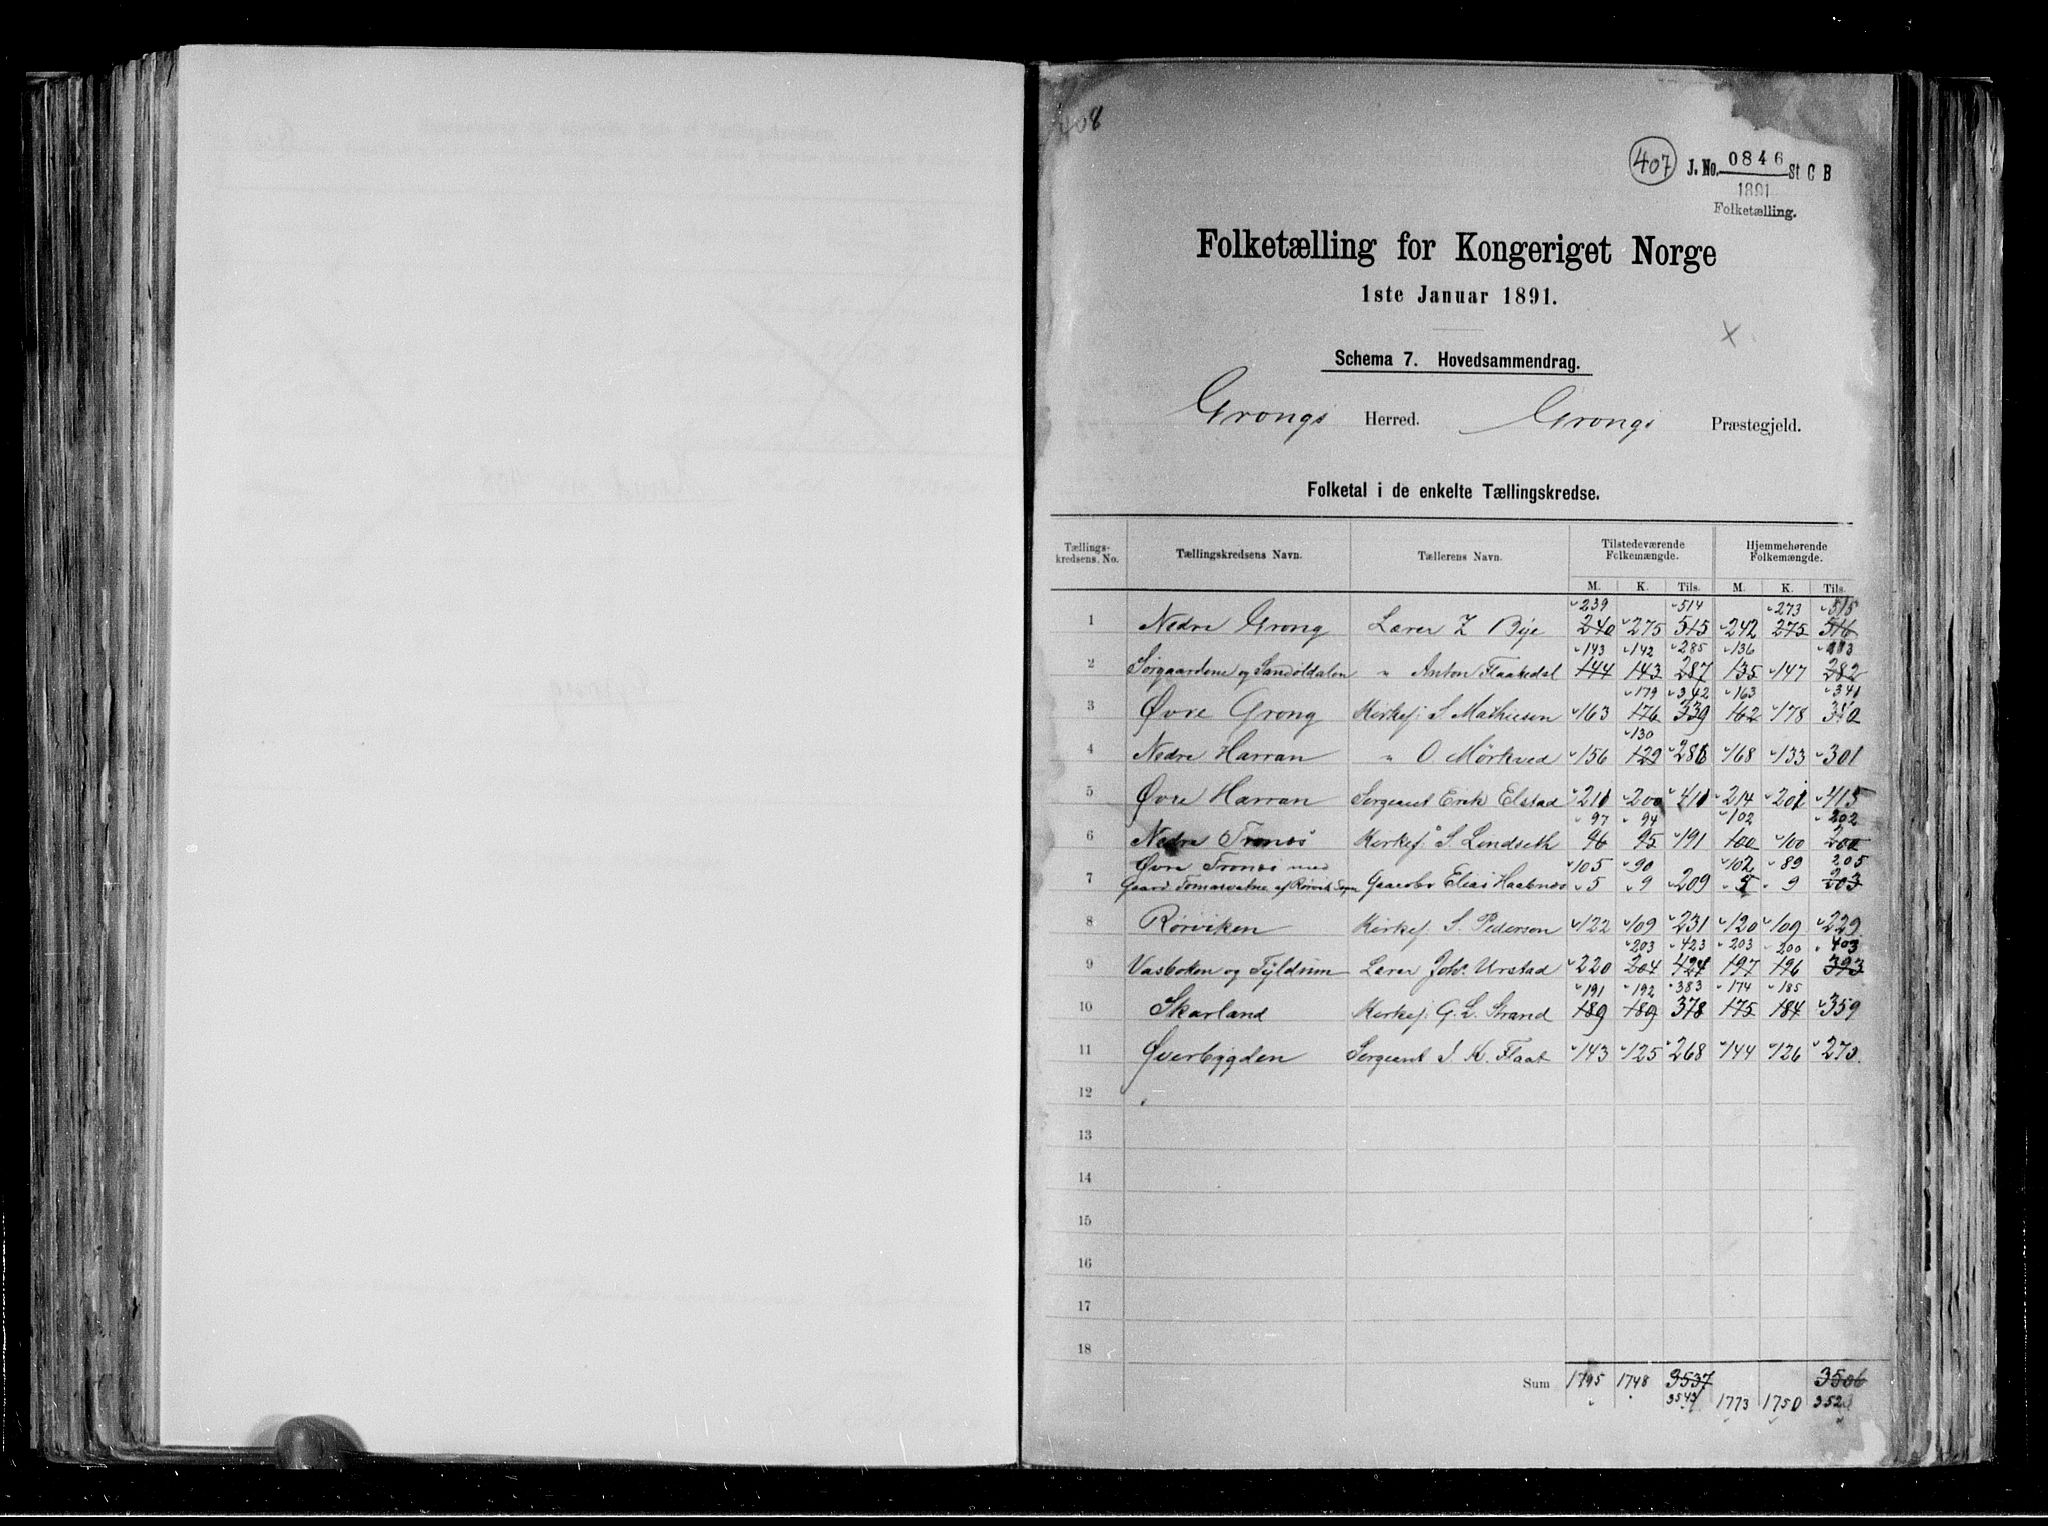 408
407 J. No. 0846 St C B
1891
Folketælling.
Folketælling for Kongeriget Norge
1ste Januar 1891.
Schema 7. Hovedsammendrag.
Grongs Herred. Grongs Præstegjeld.
Folketal i de enkelte Tællingskredse.
Tællings-kredsens No. Tællingskredsens Navn. Tællerens Navn. Tilstedeværende Folkemængde. Hjemmehørende Folkemængde.
M. K. Tils. M. K. Tils.
239 514 273 515
1 Nedre Grong Lærer Z Bye 240 275 515 242 275 516
143 142 285 136 283
2 Sørgaardene og Sandöldalen " Anton Flaakedal 144 143 287 135 147 282
179 342 163 341
3 Øvre Grong Kirkesj. S Mathiesen 163 176 339 162 178 340
130
4 Nedre Harran " O Mörkved 156 129 286 168 133 301
5 Øvre Harran Sergeant Erik Elstad 210 200 410 214 201 415
97 94 102 202
6 Nedre Tronæs Kirkesj. S. Lindseth 96 95 191 100 100 200
Øvre Tronæs med 105 90 102 89 205
7 Gaard Tomasvatne af Rörvik Sogn Gaardbr Elias Haabnæs 5 9 209 5 9 203
8 Rørviken Kirkesj. S. Pederson 122 109 231 120 109 229
203 423 203 200 403
9 Vasboken og Fyldum Lærer Joh. Urstad 220 204 424 197 196 393
191 192 383 174 185
10 Skarland Kirkesj. G. L. Strand 189 189 378 175 184 359
11 Øverbygden Sergeant I. K. Flaat 143 125 268 144 126 270
12
13
14
15
16
17
18
Sum 1795 1748 3537 3506
3543 1773 1750 3523